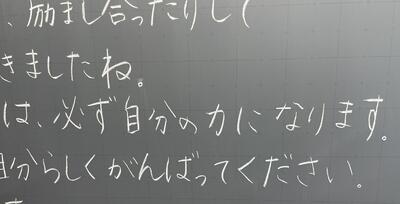 、励まし合ったりして
きましたね。
は、必ず自分の力になります。
自分らしくがんばってください。